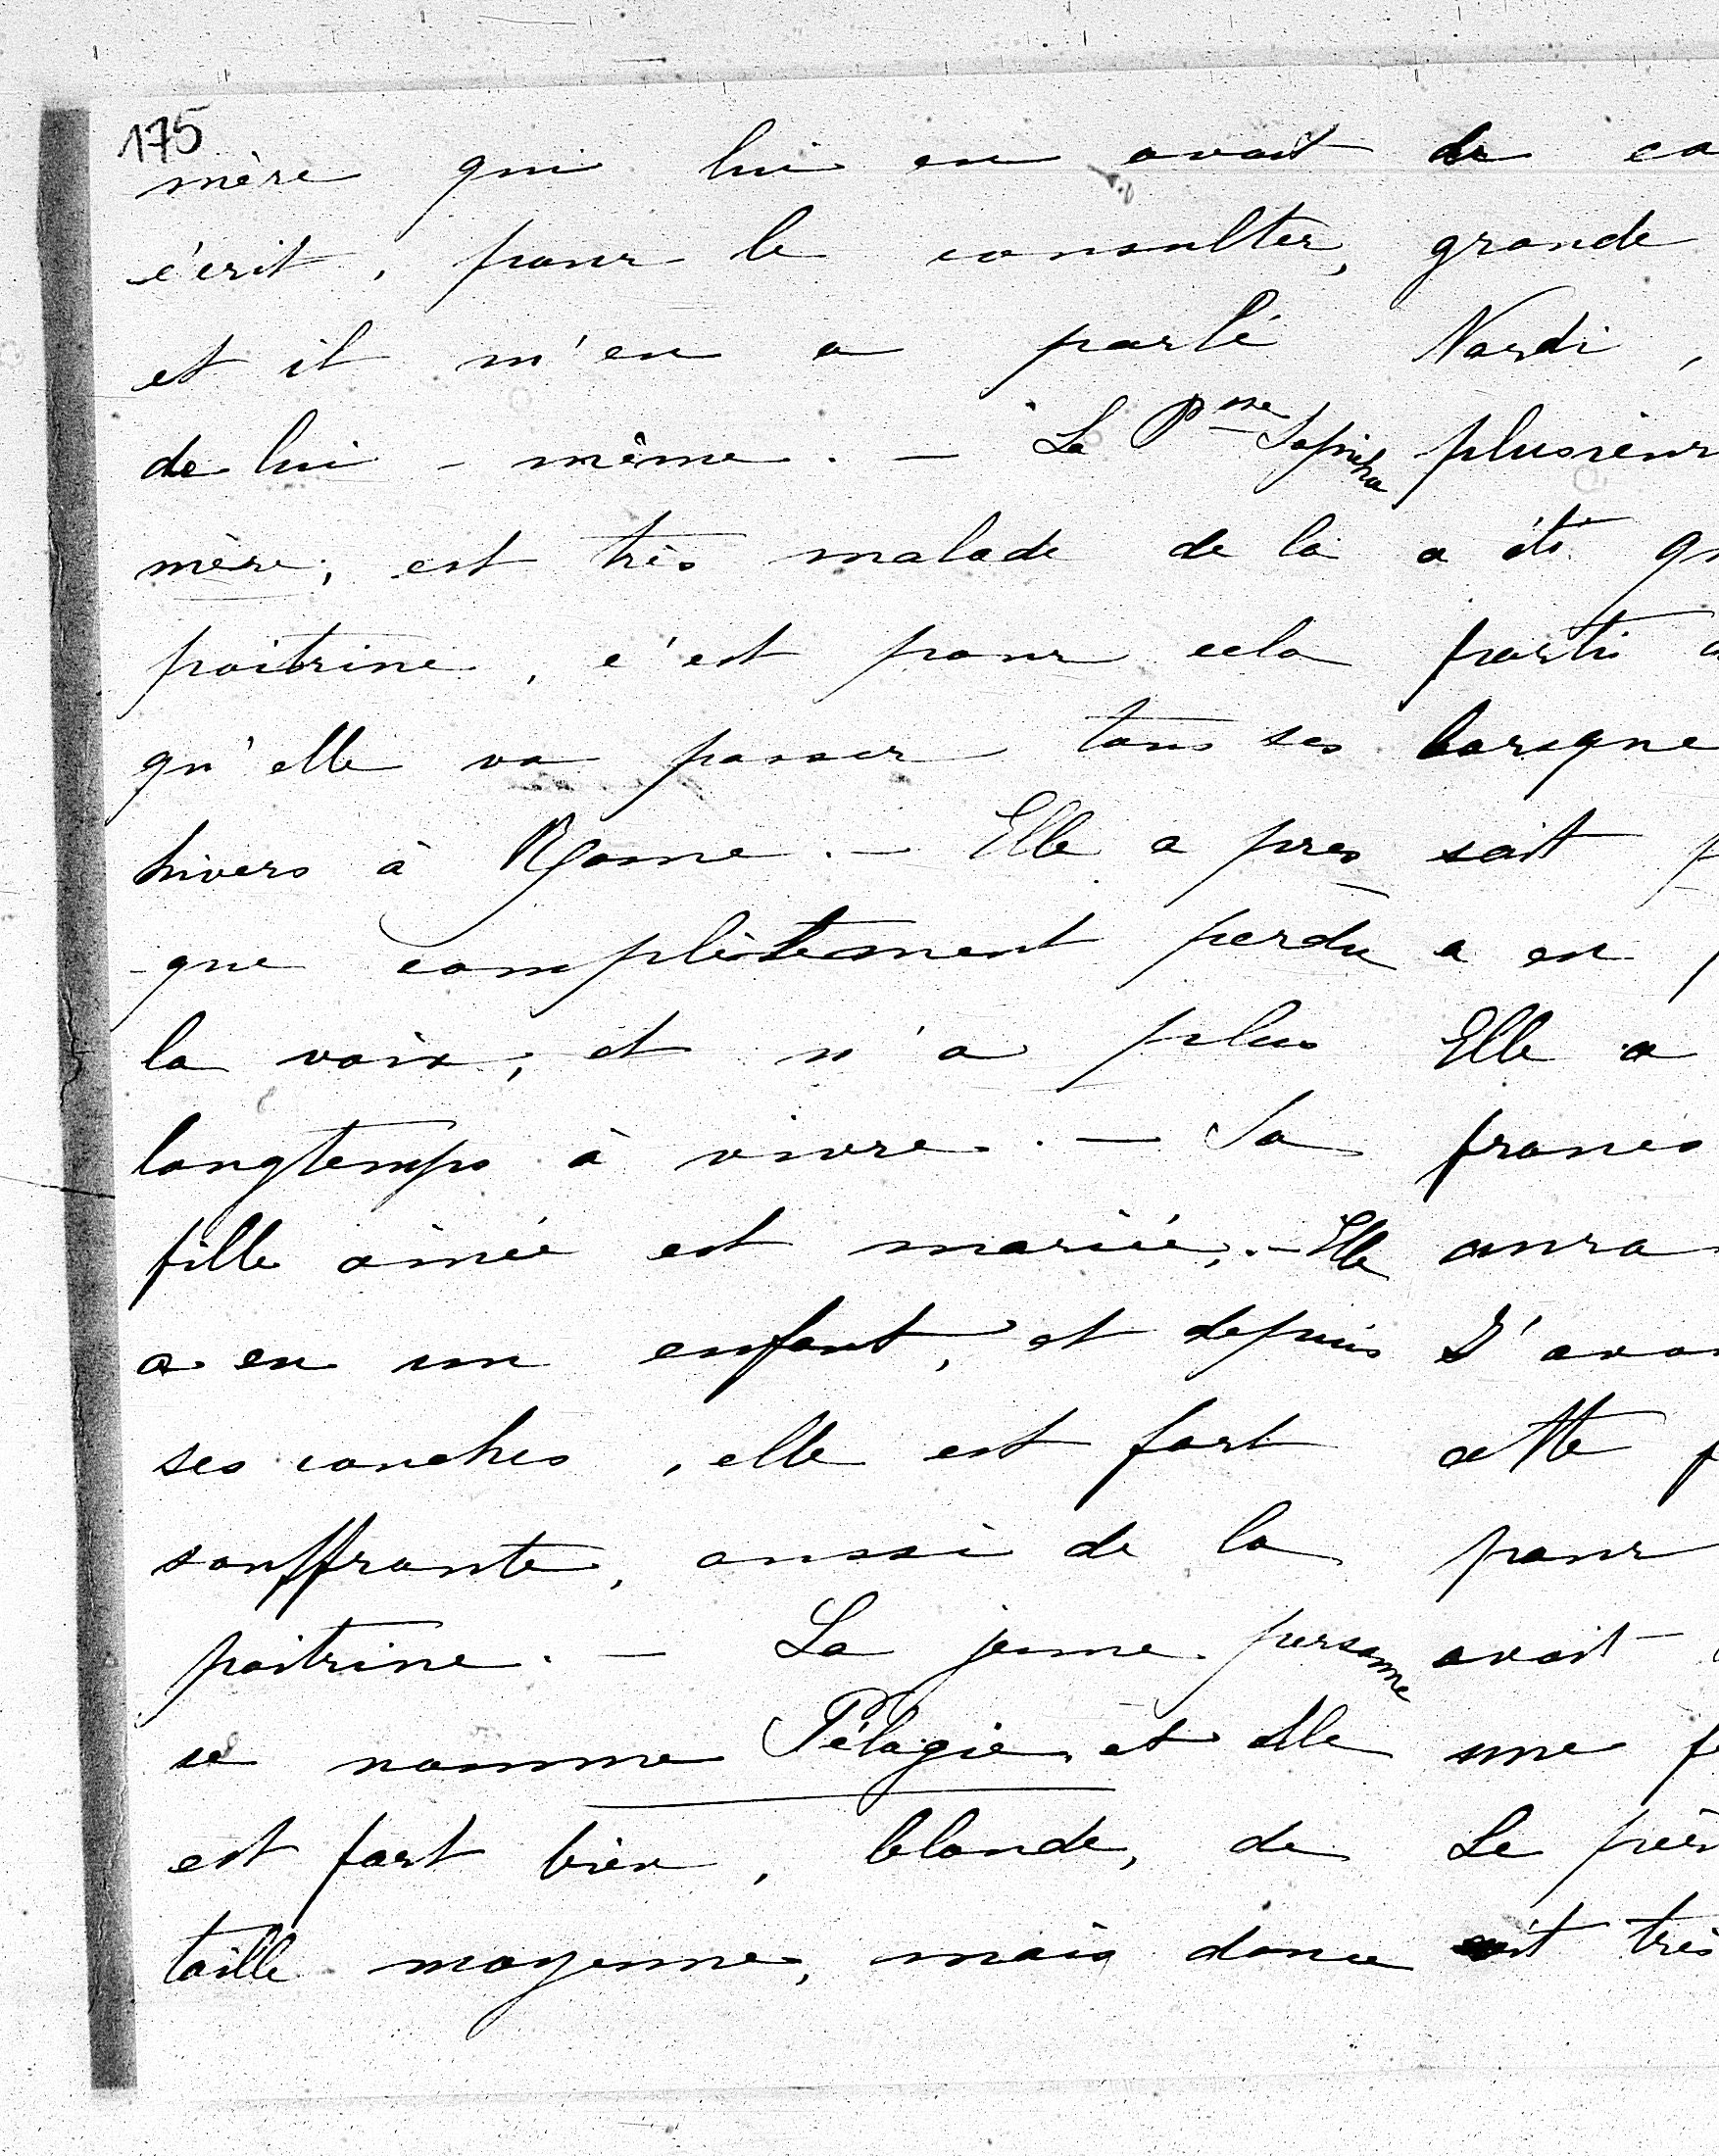 175
mère qui lui en avait
écrit, pour le consulter,
et il m'en a parlé
de lui-même. — La Psse Sapieha
mère, est très malade de la
poitrine, c'est pour cela
qu'elle va passer tous ses
hivers à Rome. — Elle a pres
-que complètement perdu
la voix, et n'a plus
longtemps à vivre. — Sa
fille aînée est mariée, — Elle
a eu un enfant, et depuis
ses couches, elle est fort
souffrante, aussi de la
poitrine. — La jeune personne
se nomme Pélagie, et elle
est fort bien, blonde, de
taille moyenne, mais douce
de ca
grande
Nardi,
plusieur
a été
parti
lorsque
soit
a eu
Elle a
aura
J'ava
cette
pour
avait
une
Le
est très